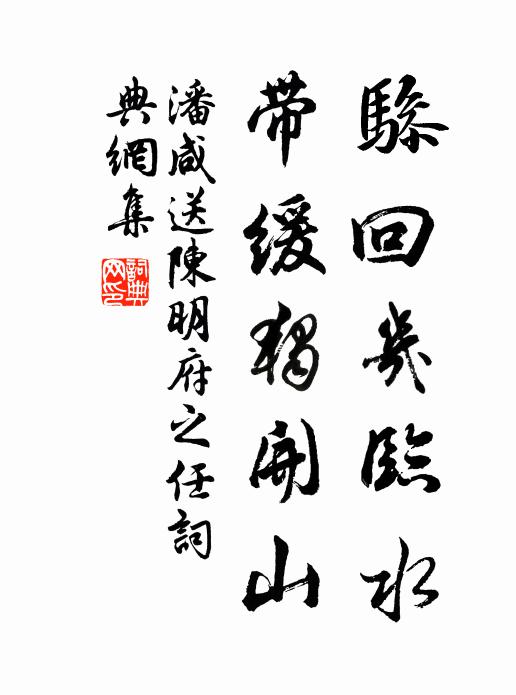 驂回幾臨水
帶緩獨開山
潘咸送陳明府之任詞
典網集
詞典
网印